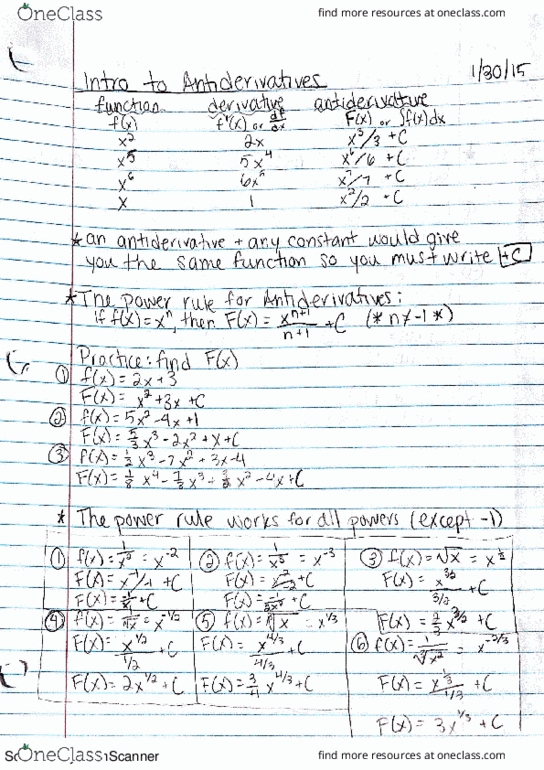 OneClass
find more resources at oneclass.com
1/30/15
Intro to Antiderivatives
function derivative antiderivative
f(x) f'(x) or df/dx F(x) or ∫f(x)dx
x² 2x x³/3 + C
x⁵ 5x⁴ x⁶/6 + C
x⁶ 6x⁵ x⁷/7 + C
x 1 x²/2 + C
* an antiderivative + any constant would give
you the same function so you must write +C
* The power rule for Antiderivatives:
if f(x) = xⁿ, then F(x) = xⁿ⁺¹/n+1 + C (* n ≠ -1 *)
Practice: find F(x)
① f(x) = 2x + 3
F(x) = x² + 3x + C
② f(x) = 5x² - 4x + 1
F(x) = 5/3 x³ - 2x² + x + C
③ f(x) = 1/2 x³ - 7x² + 3x - 4
F(x) = 1/8 x⁴ - 7/3 x³ + 3/2 x² - 4x + C
* The power rule works for all powers (except -1)
① f(x) = = x⁻²
F(x) = x⁻¹/-1 + C
F(x) = + C
② f(x) = = x⁻³
F(x) = x⁻²/-2 + C
F(x) = + C
③ f(x) = √x = x^1/2
F(x) = x^3/2 / 3/2 + C
F(x) = 2/3 x^3/2 + C
④ f(x) = 1/√x = x^-1/2
F(x) = x^1/2 / 1/2 + C
F(x) = 2x^1/2 + C
⑤ f(x) = ∛x = x^1/3
F(x) = x^4/3 / 4/3 + C
F(x) = 3/4 x^4/3 + C
⑥ f(x) = 1/∛x² = x^-2/3
F(x) = x^1/3 / 1/3 + C
F(x) = 3x^1/3 + C
OneClass Scanner
find more resources at oneclass.com